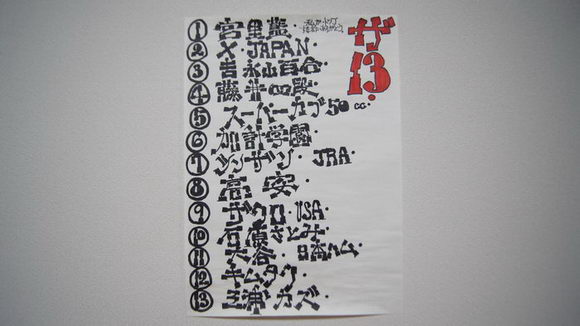 ザ・13・
① 宮里藍・
② X・JAPAN・
③ 吉永小百合・
④ 藤井四段・
⑤ スーパーカブ50cc・
⑥ 加計学園・
⑦ シンザン・JRA・
⑧ 高安・
⑨ ザクロ・USA・
⑩ 石原さとみ・
⑪ 大谷・日本ハム・
⑫ キムタク・
⑬ 三浦カズ・